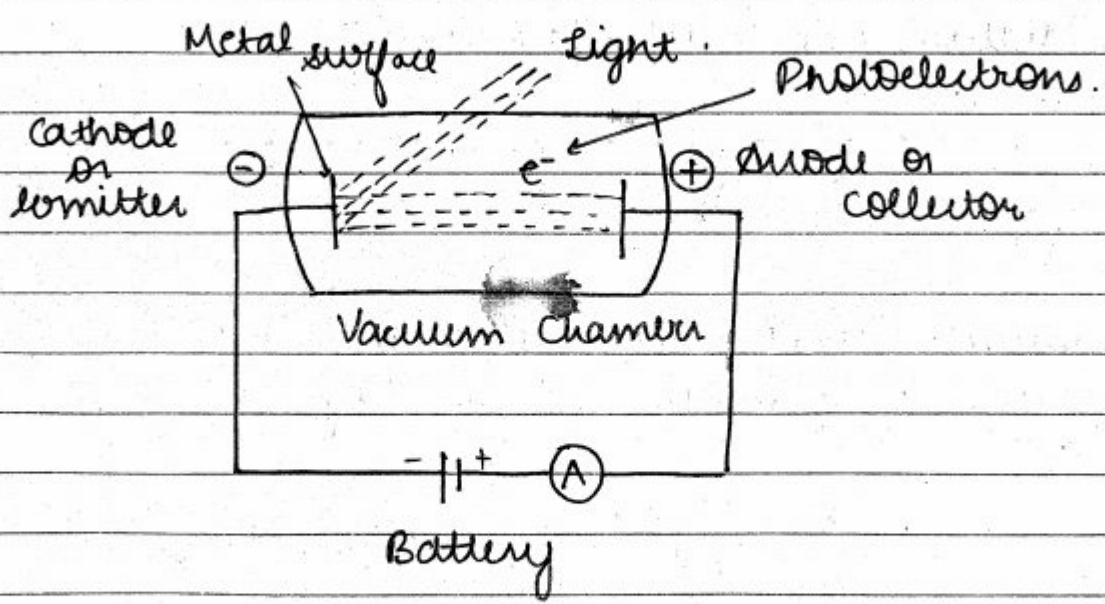 Metal surface
Light.
Photoelectrons.
Cathode
or
Eomitter
-
e-
+
Anode or
collector
Vacuum Chamerr
- +
A
Battery